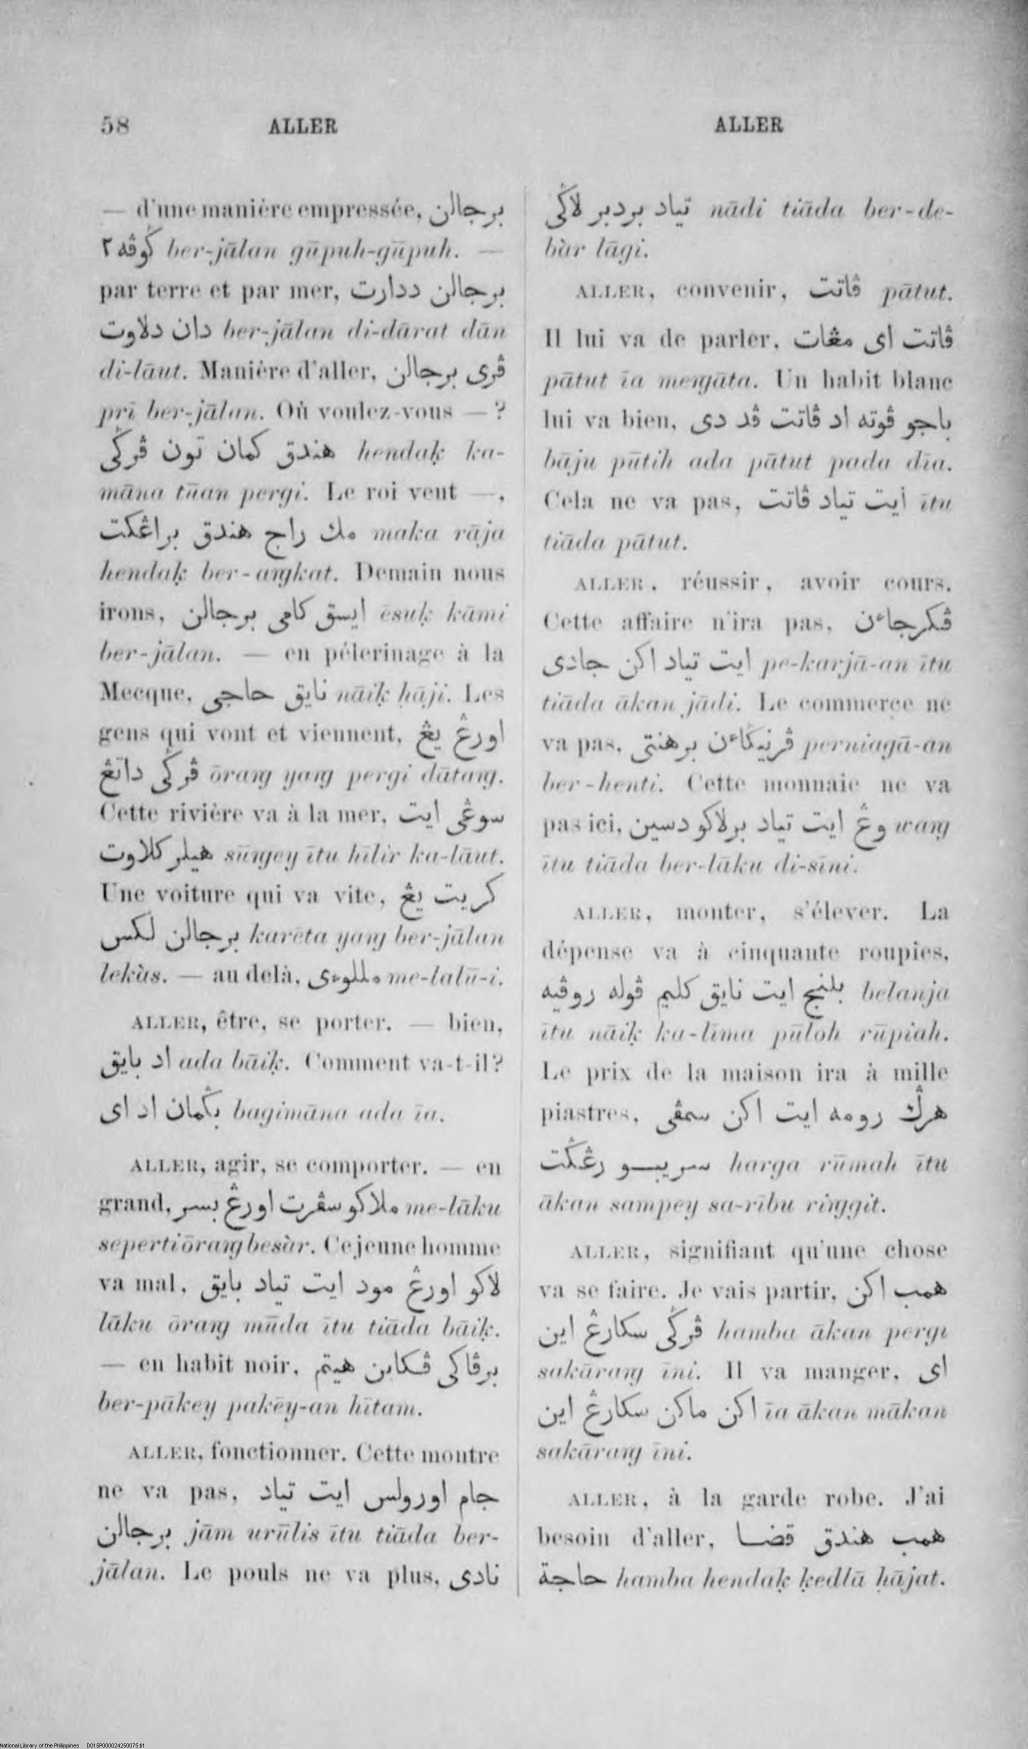 58 ALLER ALLER
— d'une manière empressée, برجالن
ݢوڤه٢ ber-jālan gūpuh-gūpuh. —
par terre et par mer, برجالن ددارت
دان دلاوت ber-jālan di-dārat dān
di-lāut. Manière d'aller, ڤري برجالن
prī ber-jālan. Où voulez-vous — ?
هندق كمان تون ڤرݢي hendaḳ ka-
māna tūan pergi. Le roi veut —,
مك راج هندق براڠكت maka rāja
hendaḳ ber-aŋkat. Demain nous
irons, ايسق كامي برجالن ēsuḳ kāmi
ber-jālan. — en pélerinage à la
Mecque, نايق حاجي nāiḳ ḥāji. Les
gens qui vont et viennent, اورڠ يڠ
ڤرݢي داتڠ ōraŋ yaŋ pergi dātaŋ.
Cette rivière va à la mer, سوڠي ايت
هيلر كلاوت sūŋey ītu hīlir ka-lāut.
Une voiture qui va vite, كريت يڠ
برجالن لكس karēta yaŋ ber-jālan
lekàs. — au delà, مللوءي me-lalū-i.
ALLER, être, se porter. — bien,
اد بايق ada bāiḳ. Comment va-t-il?
بݢمان اد اي bagimāna ada īa.
ALLER, agir, se comporter. — en
grand, ملاكو سڤرت اورڠ بسر me-lāku
seperti ōraŋ besàr. Ce jeune homme
va mal, لاكو اورڠ مود ايت تياد بايق
lāku ōraŋ mūda ītu tiāda bāiḳ.
— en habit noir, برڤاكي ڤكاين هيتم
ber-pākey pakēy-an hītam.
ALLER, fonctionner. Cette montre
ne va pas, جام اورولس ايت تياد
برجالن jām urūlis ītu tiāda ber-
jālan. Le pouls ne va plus, نادي
تياد بردبر لاݢي nādi tiāda ber-de-
bàr lāgi.
ALLER, convenir, ڤاتت pātut.
Il lui va de parler, ڤاتت اي مڠات
pātut īa meŋāta. Un habit blanc
lui va bien, باجو ڤوته اد ڤاتت ڤد دي
bāju pūtih ada pātut pada dīa.
Cela ne va pas, ايت تياد ڤاتت ītu
tiāda pātut.
ALLER, réussir, avoir cours.
Cette affaire n'ira pas, ڤكرجاءن
ايت تياد اكن جادي pe-karjā-an ītu
tiāda ākan jādi. Le commerce ne
va pas, ڤرنيݢاءن برهنتي perniagā-an
ber-henti. Cette monnaie ne va
pas ici, وڠ ايت تياد برلاكو دسين waŋ
ītu tiāda ber-lāku di-sīni.
ALLER, monter, s'élever. La
dépense va à cinquante roupies,
بلنج ايت نايق كليم ڤوله روڤيه belanja
ītu nāiḳ ka-līma pūloh rūpiah.
Le prix de la maison ira à mille
piastres, هرݢ رومه ايت اكن سمڤي
سريبو رڠݢت harga rūmah ītu
ākan sampey sa-rību riŋgit.
ALLER, signifiant qu'une chose
va se faire. Je vais partir, همب اكن
ڤرݢي سكارڠ اين hamba ākan pergi
sakāraŋ īni. Il va manger, اي
اكن ماكن سكارڠ اين īa ākan mākan
sakāraŋ īni.
ALLER, à la garde robe. J'ai
besoin d'aller, همب هندق قضا
حاجة hamba hendaḳ ḳedlā ḥājat.
National Library of the Philippines D01SP000024250075.tif